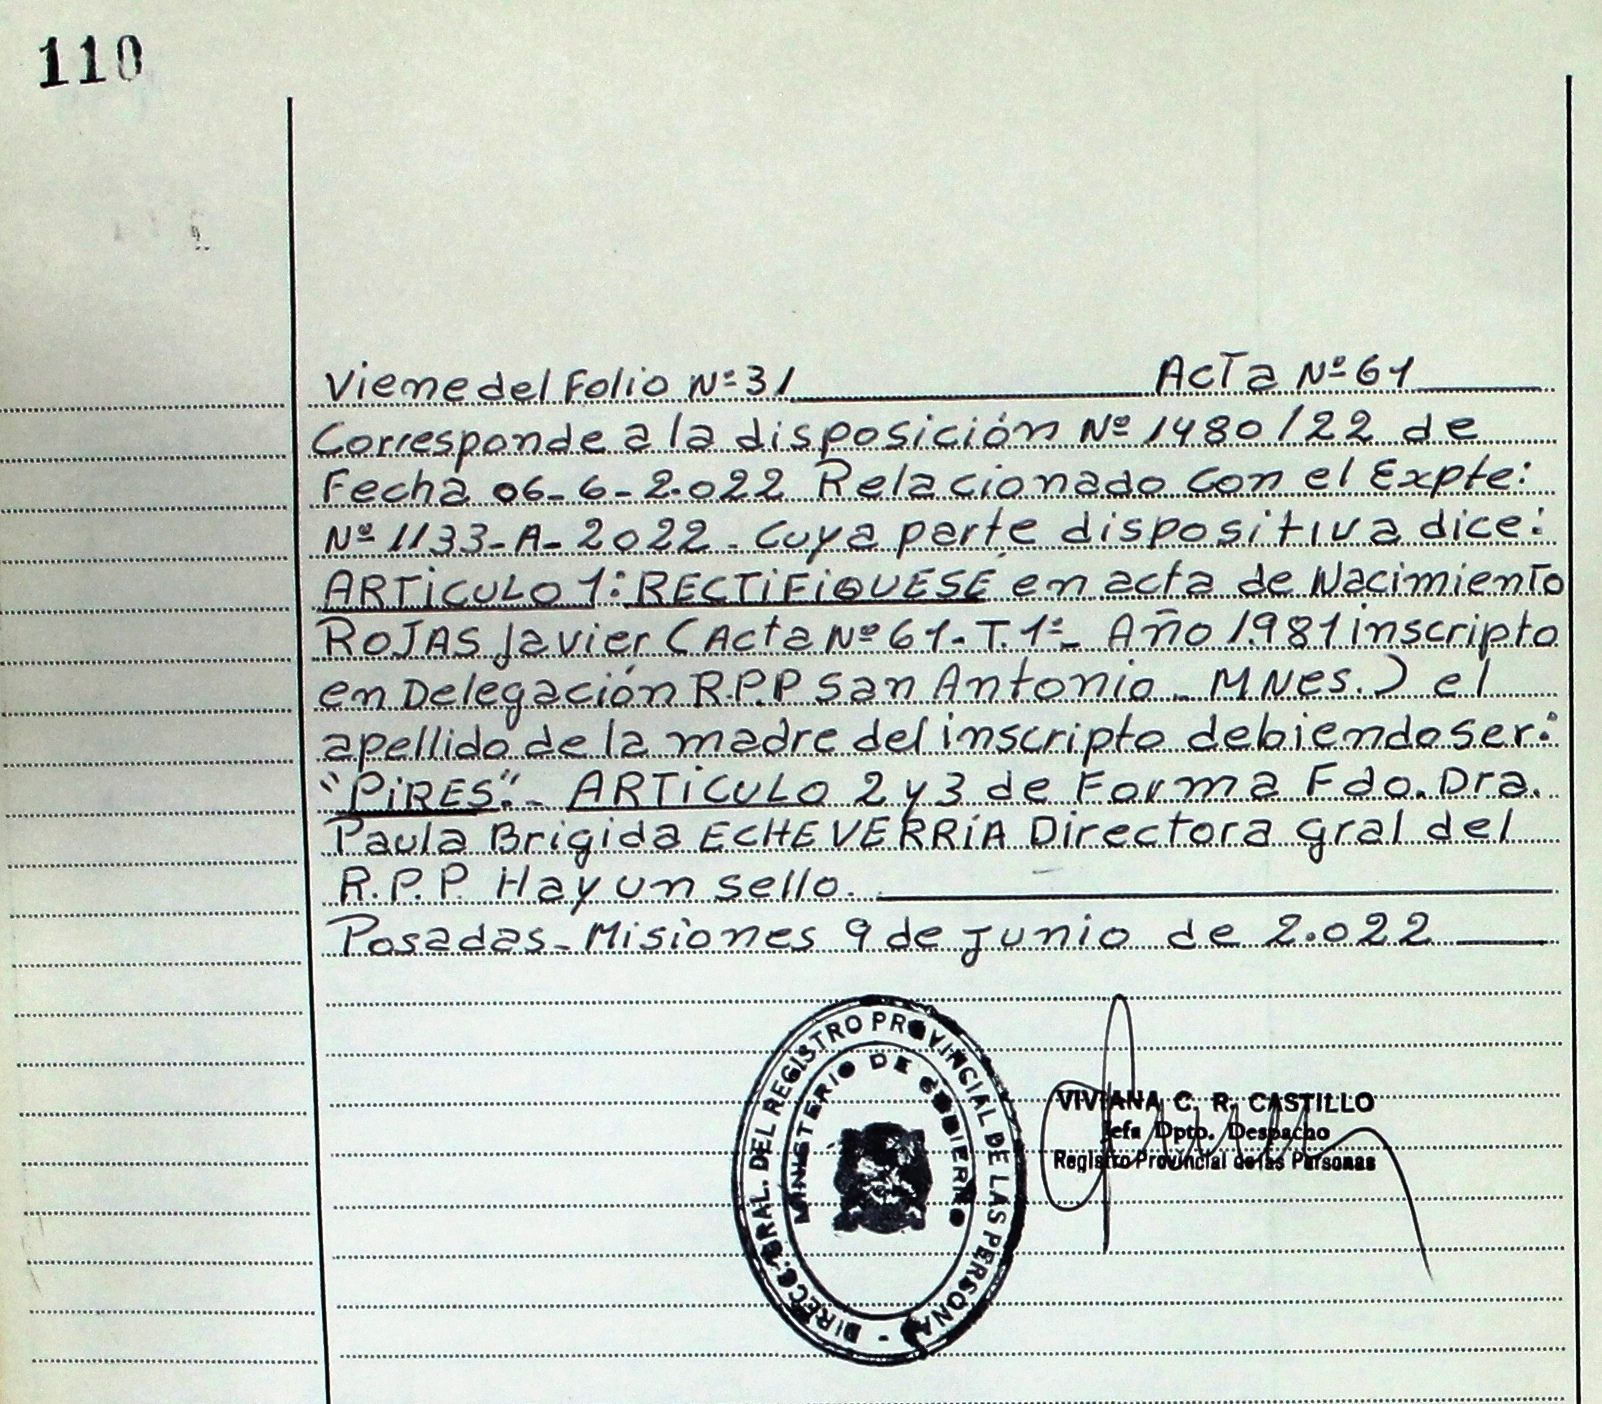 110
Viene del Folio Nº 31 Acta Nº 61
Corresponde a la disposición Nº 1480/22 de
Fecha 06-6-2.022 Relacionado con el Expte:
Nº 1133-A-2022. Cuya parte dispositiva dice:
ARTICULO 1: RECTIFIQUESE en acta de Nacimiento
ROJAS Javier (Acta Nº 61-T.1º- Año 1.981 inscripto
en Delegación R.P.P San Antonio - MNes.) el
apellido de la madre del inscripto debiendo ser:
"PIRES".- ARTICULO 2 y 3 de Forma Fdo. Dra.
Paula Brigida ECHEVERRIA Directora gral del
R.P.P. Hay un sello.
Posadas - Misiones 9 de junio de 2.022
DIREC. GRAL. DEL REGISTRO PROVINCIAL DE LAS PERSONAS -
MINISTERIO DE GOBIERNO
VIVIANA C. R. CASTILLO
Jefa Dpto. Despacho
Registro Provincial de las Personas